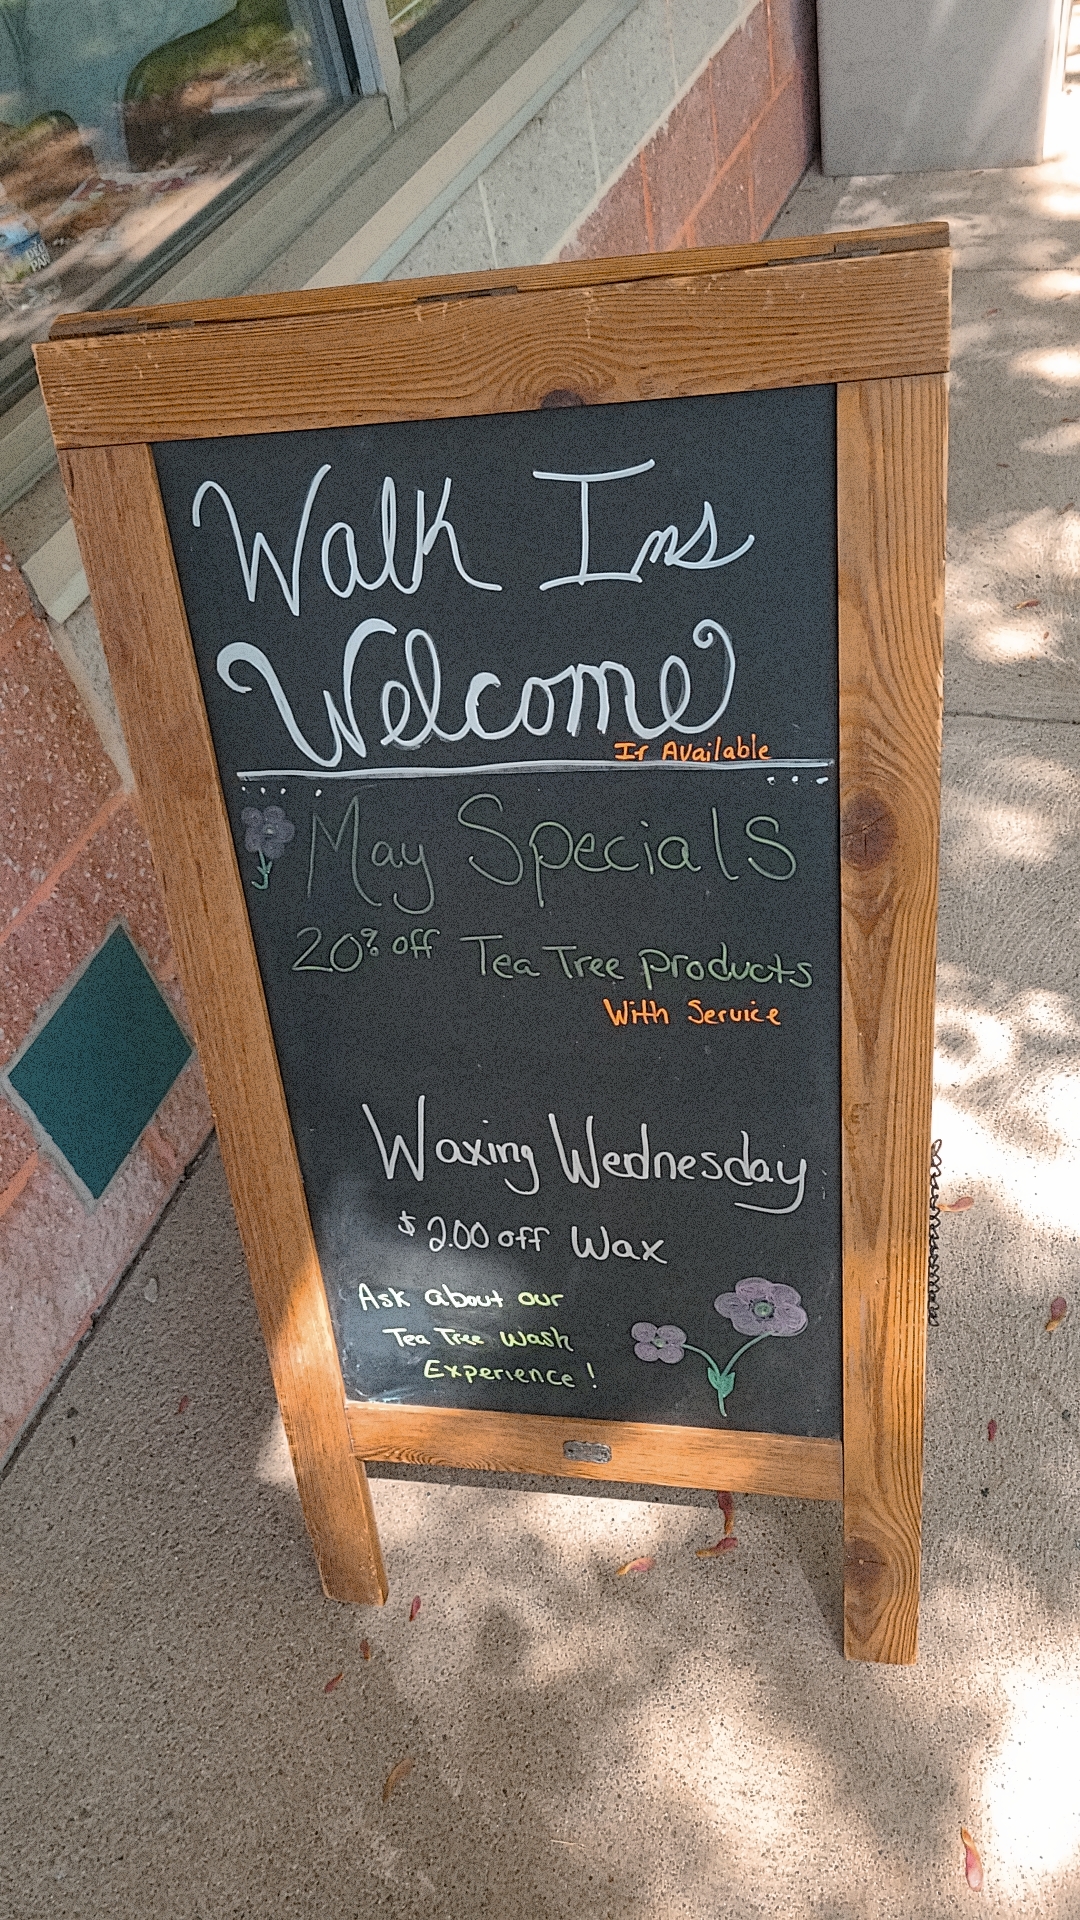 Walk Ins
Welcome
If Available
May Specials
20% off Tea Tree products
With Service
Waxing Wednesday
$2.00 off Wax
Ask about our
Tea Tree Wash
Experience!